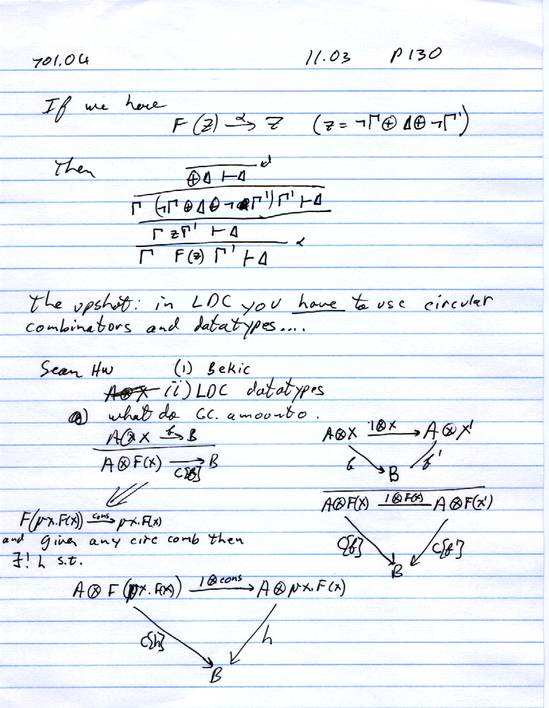 701.04 11.03 P130
If we have
F(z) →α z (z = ¬Γ ⊕ Δ ⊕ ¬Γ')
Then
⊕Δ ⊢ Δ d
Γ (¬Γ ⊕ Δ ⊕ ¬Γ') Γ' ⊢ Δ
Γ z Γ' ⊢ Δ
Γ F(z) Γ' ⊢ Δ α
The upshot: in LDC you have to use circular
combinators and datatypes....
Sean HW (i) Bekic
(ii) LDC datatypes
a) what do CC. amount to.
A⊗X →f B
A⊗F(X) →C[f] B
A⊗X →1⊗x A⊗X'
f f'
B
A⊗F(X) →1⊗F(x) A⊗F(X')
C[f] C[f']
B
F(μx.F(x)) →cons μx.F(x)
and given any circ comb then
∃! h s.t.
A⊗F(μx.F(x)) →1⊗cons A⊗μx.F(x)
C[h] h
B